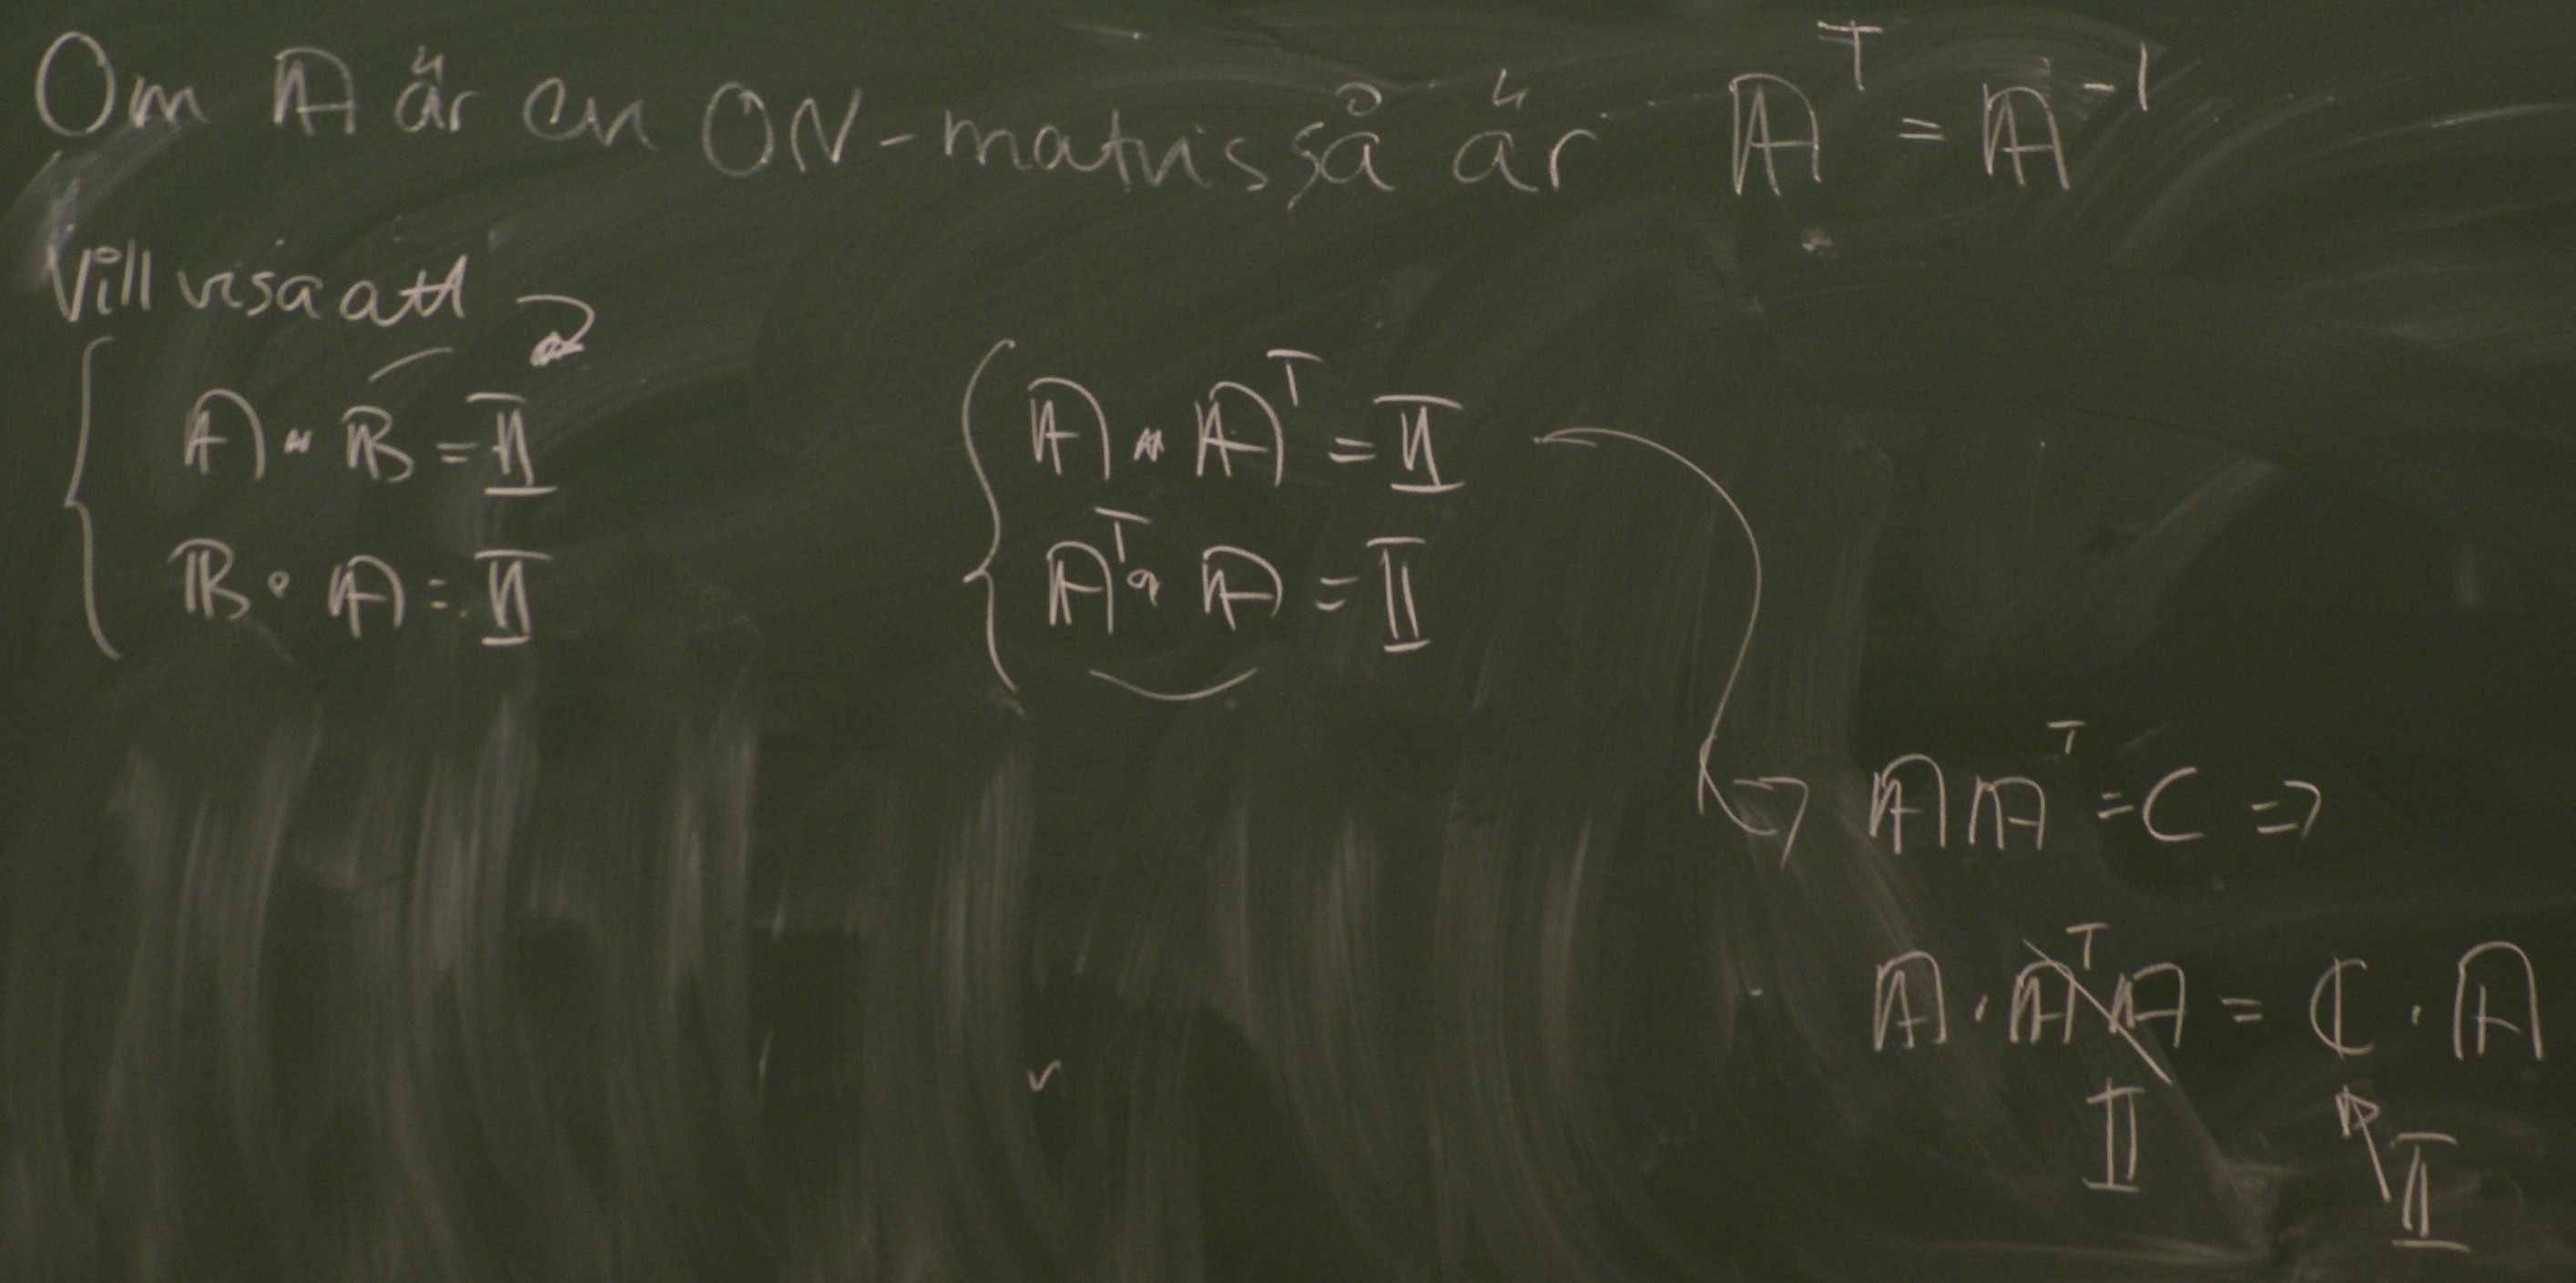 Om A är en ON-matris så är Aᵀ = A⁻¹
Vill visa att
A · B = I
B · A = I
A · Aᵀ = I
Aᵀ · A = I
A Aᵀ = C ⇒
A · Aᵀ A = C · A
I
I